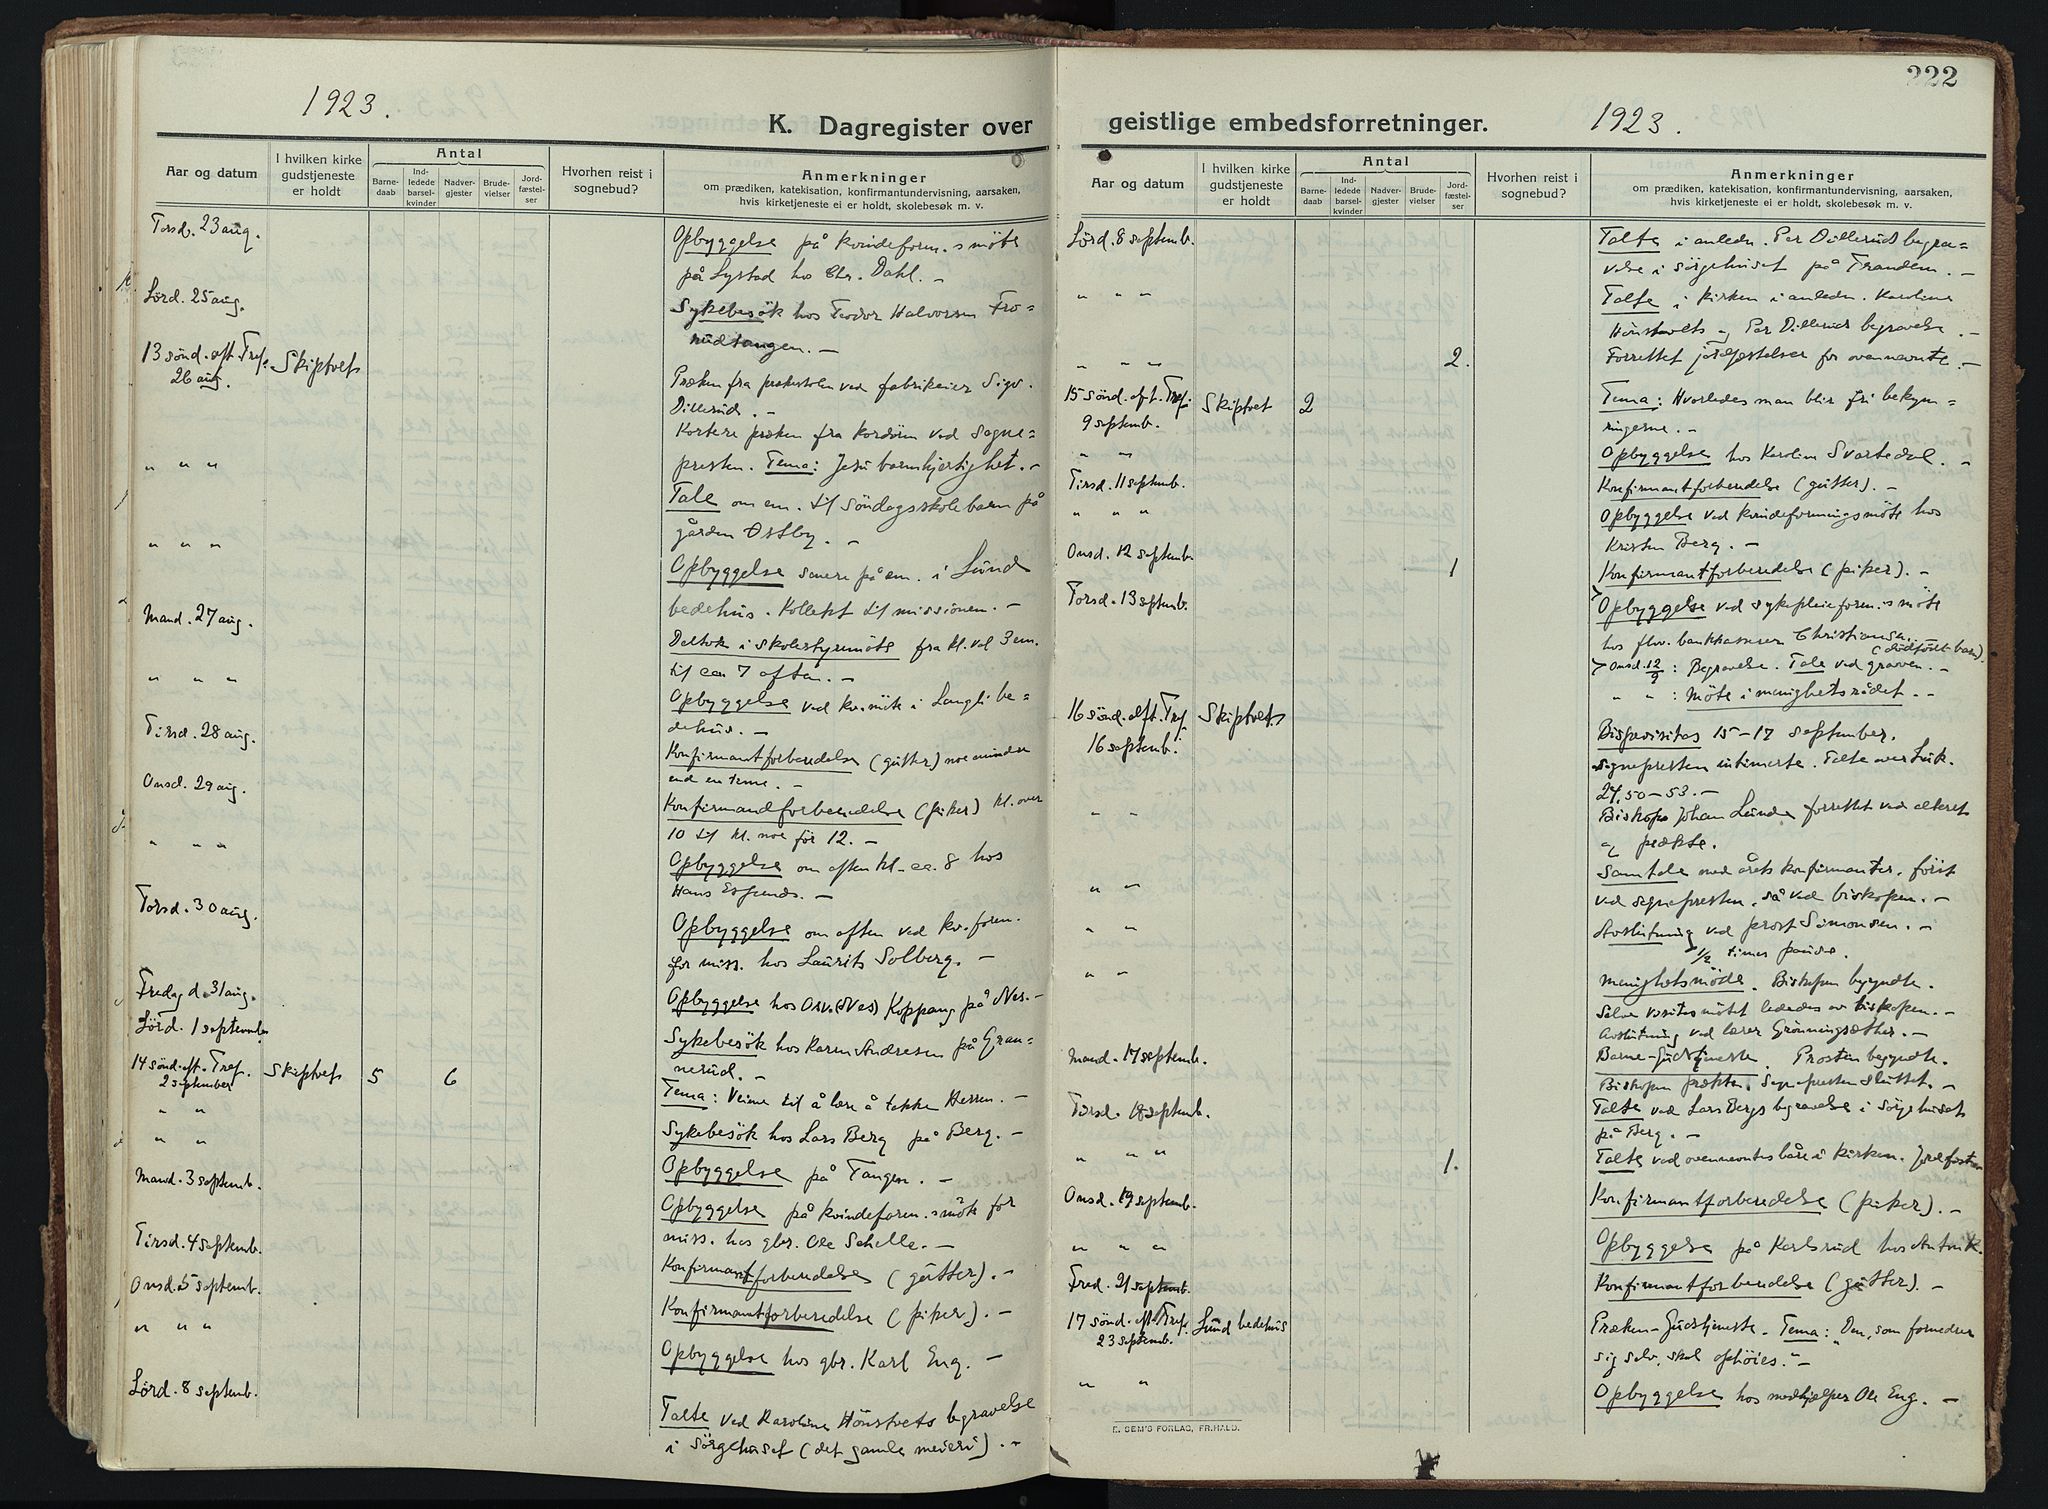 1923.
K. Dagregister over
Aar og datum
I hvilken kirke gudstjeneste er holdt
Antal
Barne-daab
Ind-ledede barsel-kvinder
Nadver-gjester
Brude-vielser
Jord-fæstel-ser
Hvorhen reist i sognebud?
Anmerkninger
om prædiken, katekisation, konfirmantundervisning, aarsaken,
hvis kirketjeneste ei er holdt, skolebesøk m. v.
Torsd. 23 aug.
Opbyggelse på kvindeforen.s möte
på Lystad hos Chr. Dahl. –
Lörd. 25 aug.
Sykebesök hos Teodor Halvorsen Fro=
rudtangen. –
13 sönd. eft. Tref. Skiptvet
26 aug.
Præken fra prækestolen ved fabrikeier Sigv.
Dillerud. –
Kortere præken fra kordören ved sogne=
presten. Tema: Jesu barmhjertighet. –
" " "
Tale om em. til Söndagsskolebarn på
gården Østby. –
" " "
Opbyggelse senere på em. i Lund
bedehus. Kollekt til missionen. –
Mand. 27 aug.
Deltok i skolestyremöte fra kl. vel 3 em.
til ca 7 aften. –
" " "
Opbyggelse ved kv.möte i Langli be=
dehus. –
Tirsd. 28 aug.
Konfirmantforberedelse (gutter) noe mindre
end en time. –
Onsd. 29 aug.
Konfirmandforberedelse (piker) kl. over
10 til kl. noe för 12. –
" " "
Opbyggelse om aften kl. ca. 8 hos
Hans
Torsd. 30 aug.
Opbyggelse om aften ved kv.foren.
for miss. hos Laurits Solberg. –
Fredag d. 31 aug.
Opbyggelse hos Osv. (Nes) Koppang på Nes. –
Lörd. 1 september
Sykebesök hos Karen Andresen på Gran=
nerud. –
14 sönd. eft. Tref. Skiptvet 5 6
2 september
Tema: Veiene til å lære å takke Herren. –
" "
Sykebesök hos Lars Berg på Berg. –
" "
Opbyggelse på Tangen. –
Mand. 3 septemb.
Opbyggelse på kvindeforen.s möte for
miss. hos gbr. Ole Schelle. –
Tirsd. 4 septemb.
Konfirmantforberedelse (gutter). –
Onsd. 5 septemb.
Konfirmantforberedelse (piker). –
" " "
Opbyggelse hos gbr. Karl Eng. –
Lörd. 8 septemb.
Talte ved Karoline Hönstvets begravelse
i sörgehuset (det gamle meieri). –
222
geistlige embedsforretninger.
1923.
Aar og datum
I hvilken kirke gudstjeneste er holdt
Antal
Barne-daab
Ind-ledede barsel-kvinder
Nadver-gjester
Brude-vielser
Jord-fæstel-ser
Hvorhen reist i sognebud?
Anmerkninger
om prædiken, katekisation, konfirmantundervisning, aarsaken,
hvis kirketjeneste ei er holdt, skolebesøk m. v.
Lörd. 8 septemb.
Talte i anledn. Per Dilleruds begra=
velse i sörgehuset på Frandem. –
" " "
Talte i kirken i anledn. Karoline
Hönstvets og Per Dilleruds begravelse. –
" " " 2.
Forrettet jordfestelser for ovennevnte. –
15 sönd. eft. Tref. Skiptvet 2
9 septemb.
Tema: Hvorledes man blir fri bekym=
ringerne. –
" "
Opbyggelse hos Karoline Svartedal. –
Tirsd. 11 septemb.
Konfirmantforberedelse (gutter). –
" " "
Opbyggelse ved kvindeforeningsmöte hos
Kristen Berg. –
Onsd. 12 septemb. 1
Konfirmantforberedelse (piker). –
Torsd. 13 septemb.
Opbyggelse ved sykepleieforen.s möte
hos fhv. bankkasserer Christiansen.
(dödfött barn).
Onsd. 12/9: Begravelse. Tale ved graven. –
" " : Möte i menighetsrådet. –
16 sönd. eft. Tref. Skiptvet
16 septemb.
Bispevisitas 15–17 september.
Sognepresten intimerte. Talte over Luk.
24,50–53. –
" "
Biskop Johan Lunde forrettet ved alteret
og prækte.
" "
Samtale med årets konfirmanter, först
ved sognepresten, så ved biskopen. –
" "
Avslutning ved prost Simonsen. –
1/2 times pause.
" "
Menighetsmöde. Biskopen begyndte.
Selve visitasmötet lededes av biskopen. –
Avslutning ved lærer Grönningsæther. –
Mand. 17 septemb.
Barne-Gudstjeneste. Prosten begyndte.
Biskopen prækte. Sognepresten sluttet. –
Tirsd. 18 septemb.
Talte ved Lars Bergs begravelse i sörgehuset
på Berg. –
" " " 1.
Talte ved ovennevntes båre i kirken. Jordfestelse
Onsd. 19 septemb.
Konfirmantforberedelse (piker). –
" " "
Opbyggelse på Karlsrud hos
Fred. 21 septemb.
Konfirmantforberedelse (gutter). –
17 sönd. eft. Tref. Lund bedehus
23 septemb.
Præken-Gudstjeneste. Tema: "Den, som fornedrer
sig selv, skal ophöies." –
" "
Opbyggelse hos medhjelper Ole Eng. –
E. SEM'S FORLAG, FR.HALD.